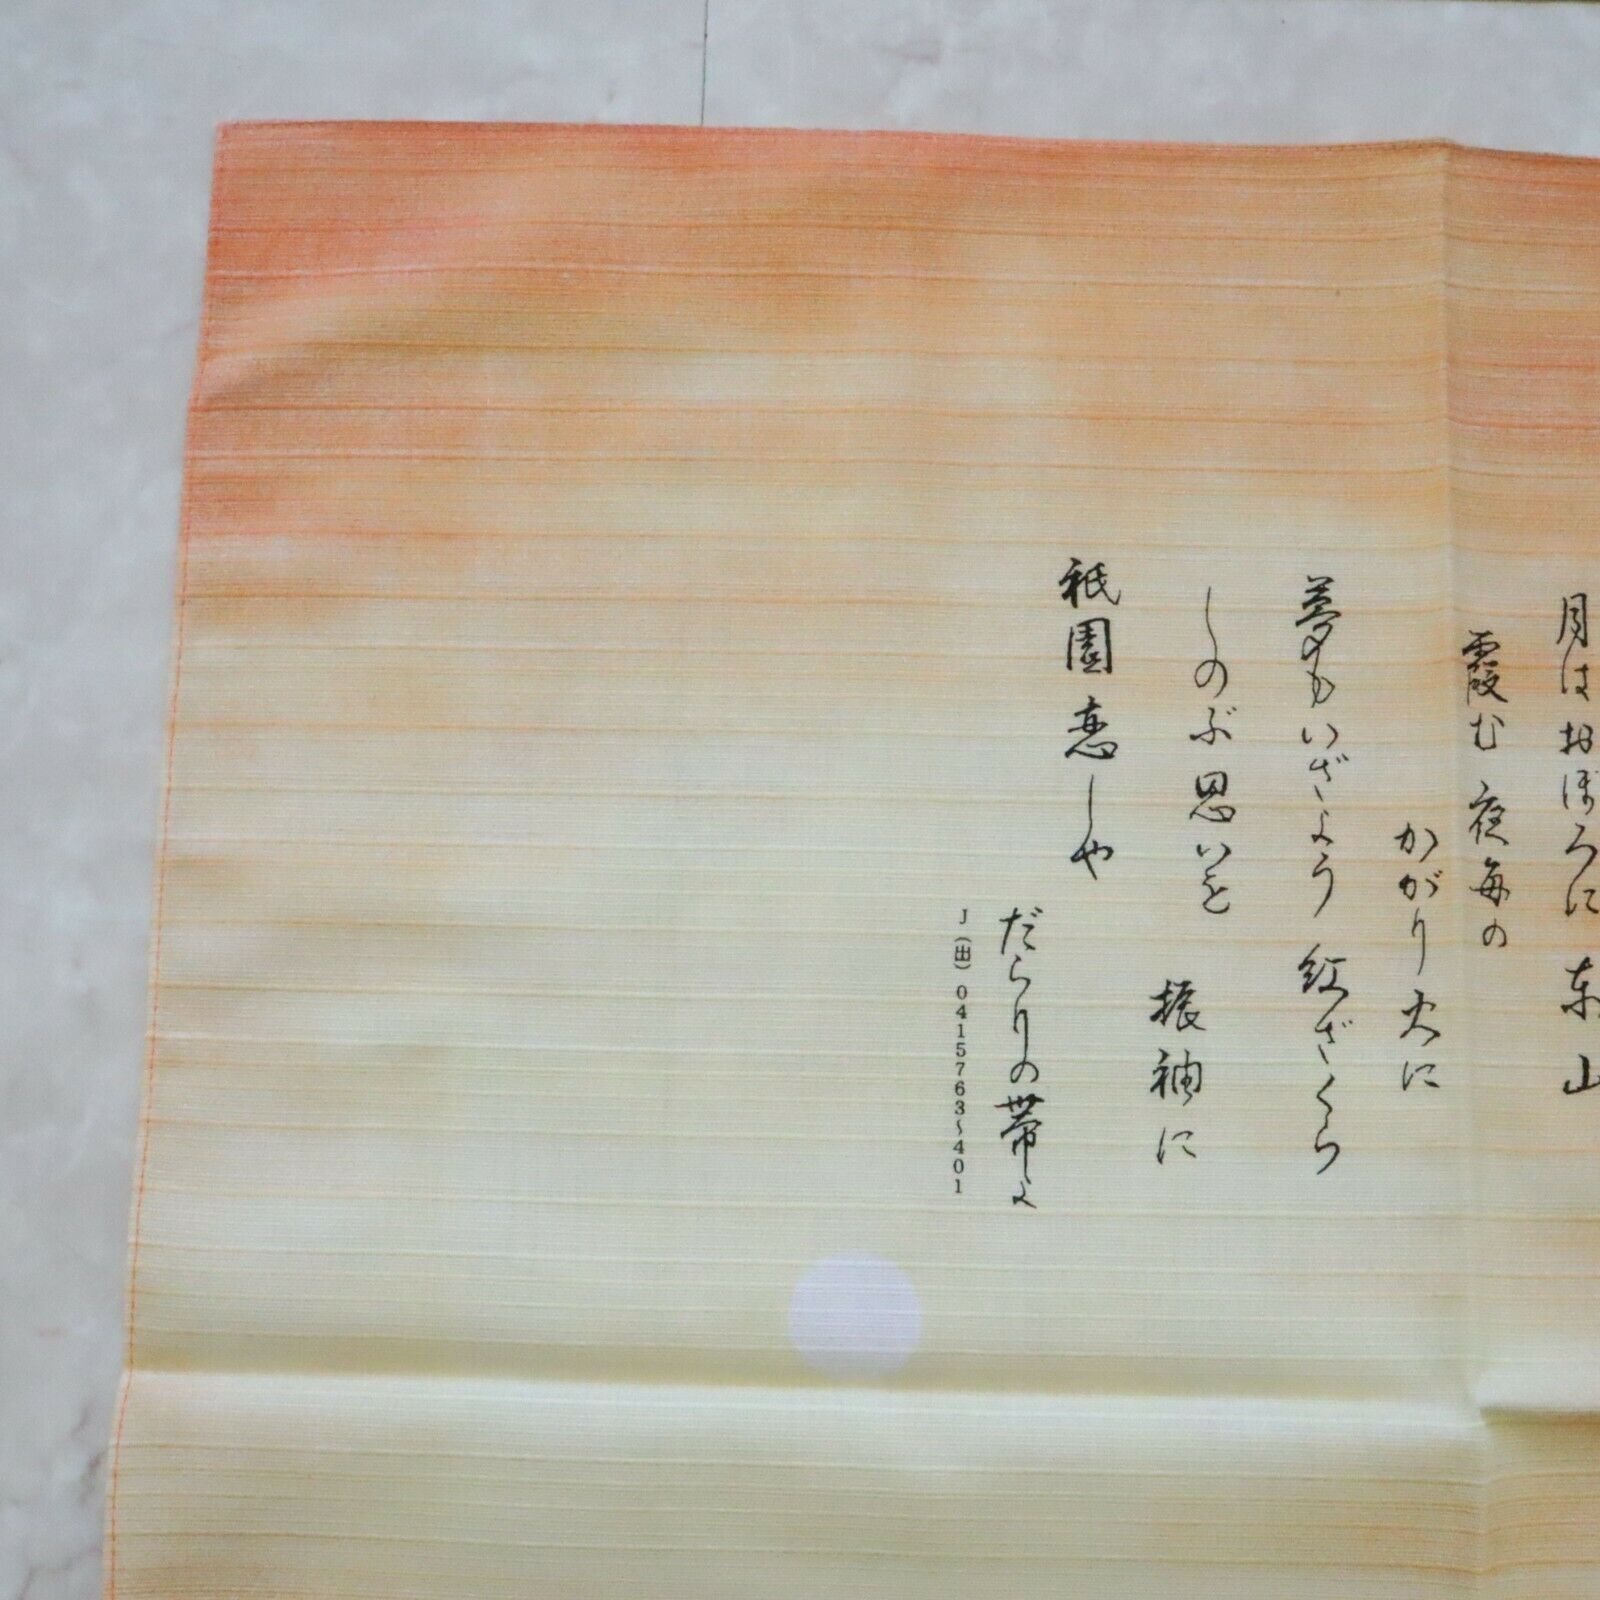 月はおぼろに東山
霞む夜毎の
かがり火に
夢もいざよう紅ざくら
しのぶ思いを
振袖に
祇園恋しや
だらりの帯よ
J(出)0415763〜401